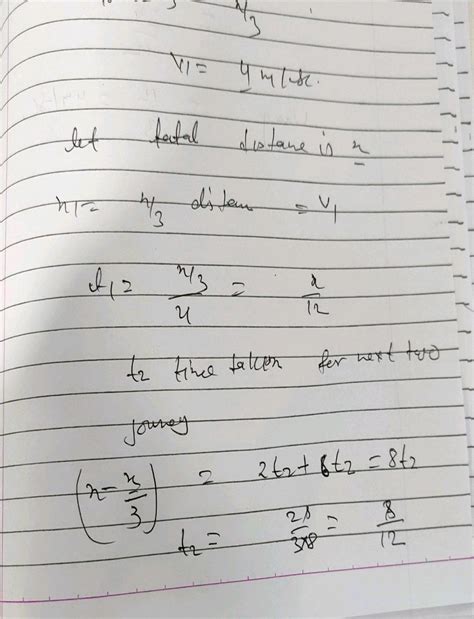 x/3
v1 = 4 m/s
let total distance is x
x1 = x/3 distan = v1
t1 = (x/3)/4 = x/12
t2 time taken for next two
jouney
(x - x/3) = 2t2 + 6t2 = 8t2
t2 = 2x/3×8 = x/12